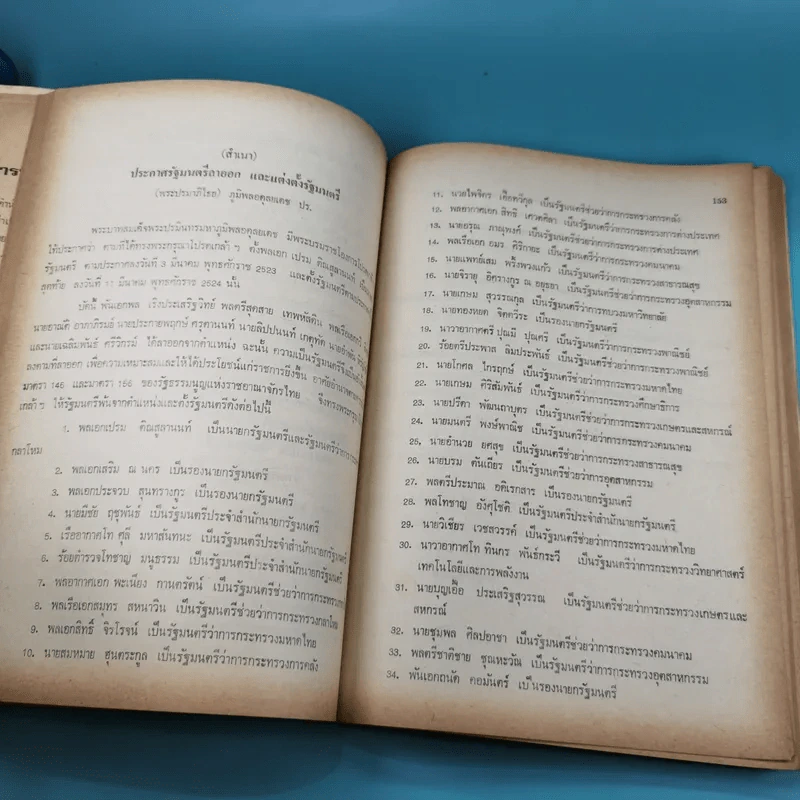 (สำเนา)
ประกาศรัฐมนตรีลาออก และแต่งตั้งรัฐมนตรี
(พระปรมาภิไธย) ภูมิพลอดุลยเดช ปร.
พระบาทสมเด็จพระปรมินทรมหาภูมิพลอดุลยเดช มีพระบรมราชโองการโปรดเกล้าฯ
ให้ประกาศว่า ตามที่ได้ทรงพระกรุณาโปรดเกล้า ฯ ตั้งพลเอก เปรม ติณสูลานนท์
รัฐมนตรี ตามประกาศลงวันที่ 3 มีนาคม พุทธศักราช 2523 และตั้งรัฐมนตรี
สุดท้าย ลงวันที่ 11 มีนาคม พุทธศักราช 2524 นั้น
บัดนี้ พันเอกพล เริงประเสริฐวิทย์ พลตรีสุตสาย เทพหัสดิน พลเรือ
นายอาณัติ อาภาภิรมย์ นายประกายพฤกษ์ ศรุตานนท์ นายลิปปนนท์ เกตุทัต
และนายเฉลิมพันธ์ ศรีวิกรม์ ได้ลาออกจากตำแหน่ง ฉะนั้น ความเป็นรัฐมนตรี
ลงตามที่ลาออก เพื่อความเหมาะสมและให้ได้ประโยชน์แก่ราชการยิ่งขึ้น อาศัยอำนาจ
มาตรา 146 และมาตรา 156 ของรัฐธรรมนูญแห่งราชอาณาจักรไทย จึงทรงพระกรุณา
เกล้า ๆ ให้รัฐมนตรีพ้นจากตำแหน่งและตั้งรัฐมนตรีดังต่อไปนี้
1. พลเอกเปรม ติณสูลานนท์ เป็นนายกรัฐมนตรีและรัฐมนตรีว่าการกระทรวง
กลาโหม
2. พลเอกเสริม ณ นคร เป็นรองนายกรัฐมนตรี
3. พลเอกประจวบ สุนทรางกูร เป็นรองนายกรัฐมนตรี
4. นายมีชัย ฤชุพันธ์ เป็นรัฐมนตรีประจำสำนักนายกรัฐมนตรี
5. เรืออากาศโท ศุลี มหาสันทนะ เป็นรัฐมนตรีประจำสำนักนายกรัฐมนตรี
6. ร้อยตำรวจโทชาญ มนูธรรม เป็นรัฐมนตรีประจำสำนักนายกรัฐมนตรี
7. พลอากาศเอก พะเนียง กานตรัตน์ เป็นรัฐมนตรีช่วยว่าการกระทรวงกลาโหม
8. พลเรือเอกสมุทร สหนาวิน เป็นรัฐมนตรีช่วยว่าการกระทรวงกลาโหม
9. พลเอกสิทธิ์ จิรโรจน์ เป็นรัฐมนตรีว่าการกระทรวงมหาดไทย
10. นายสมหมาย ฮุนตระกูล เป็นรัฐมนตรีว่าการกระทรวงการคลัง
153
11. นายไพจิตร เอื้อทวีกุล เป็นรัฐมนตรีช่วยว่าการกระทรวงการคลัง
12. พลอากาศเอก สิทธิ เศวตศิลา เป็นรัฐมนตรีว่าการกระทรวงการต่างประเทศ
13. นายอรุณ ภาณุพงศ์ เป็นรัฐมนตรีช่วยว่าการกระทรวงการต่างประเทศ
14. พลเรือเอก อมร ศิริกายะ เป็นรัฐมนตรีว่าการกระทรวงคมนาคม
15. นายแพทย์เสม พริ้งพวงแก้ว เป็นรัฐมนตรีว่าการกระทรวงสาธารณสุข
16. นายจิรายุ อิศรางกูร ณ อยุธยา เป็นรัฐมนตรีช่วยว่าการกระทรวงอุตสาหกรรม
17. นายเกษม สุวรรณกุล เป็นรัฐมนตรีว่าการทบวงมหาวิทยาลัย
18. นายทองหยด จิตตวีระ เป็นรองนายกรัฐมนตรี
19. นาวาอากาศตรี ปุณมี ปุณศรี เป็นรัฐมนตรีว่าการกระทรวงพาณิชย์
20. ร้อยตรีประพาส ลิมปะพันธ์ เป็นรัฐมนตรีช่วยว่าการกระทรวงพาณิชย์
21. นายโกศล ไกรฤกษ์ เป็นรัฐมนตรีช่วยว่าการกระทรวงมหาดไทย
22. นายเกษม ศิริสัมพันธ์ เป็นรัฐมนตรีว่าการกระทรวงศึกษาธิการ
23. นายปรีดา พัฒนถาบุตร เป็นรัฐมนตรีช่วยว่าการกระทรวงเกษตรและสหกรณ์
24. นายมนตรี พงษ์พาณิช เป็นรัฐมนตรีช่วยว่าการกระทรวงคมนาคม
25. นายอำนวย ยศสุข เป็นรัฐมนตรีช่วยว่าการกระทรวงสาธารณสุข
26. นายบรม ตันเถียร เป็นรัฐมนตรีช่วยว่าการอุตสาหกรรม
27. พลตรีประมาณ อดิเรกสาร เป็นรองนายกรัฐมนตรี
28. พลโทชาญ อังศุโชติ เป็นรัฐมนตรีประจำสำนักนายกรัฐมนตรี
29. นายวิเชียร เวชสวรรค์ เป็นรัฐมนตรีช่วยว่าการกระทรวงมหาดไทย
30. นาวาอากาศโท ทินกร พันธ์กระวี เป็นรัฐมนตรีช่วยว่าการกระทรวงวิทยาศาสตร์
เทคโนโลยีและการพลังงาน
31. นายบุญเอื้อ ประเสริฐสุวรรณ เป็นรัฐมนตรีช่วยว่าการกระทรวงเกษตรและ
สหกรณ์
32. นายชุมพล ศิลปอาชา เป็นรัฐมนตรีช่วยว่าการกระทรวงคมนาคม
33. พลตรีชาติชาย ชุณหะวัณ เป็นรัฐมนตรีว่าการกระทรวงอุตสาหกรรม
34. พันเอกถนัด คอมันตร์ เป็นรองนายกรัฐมนตรี